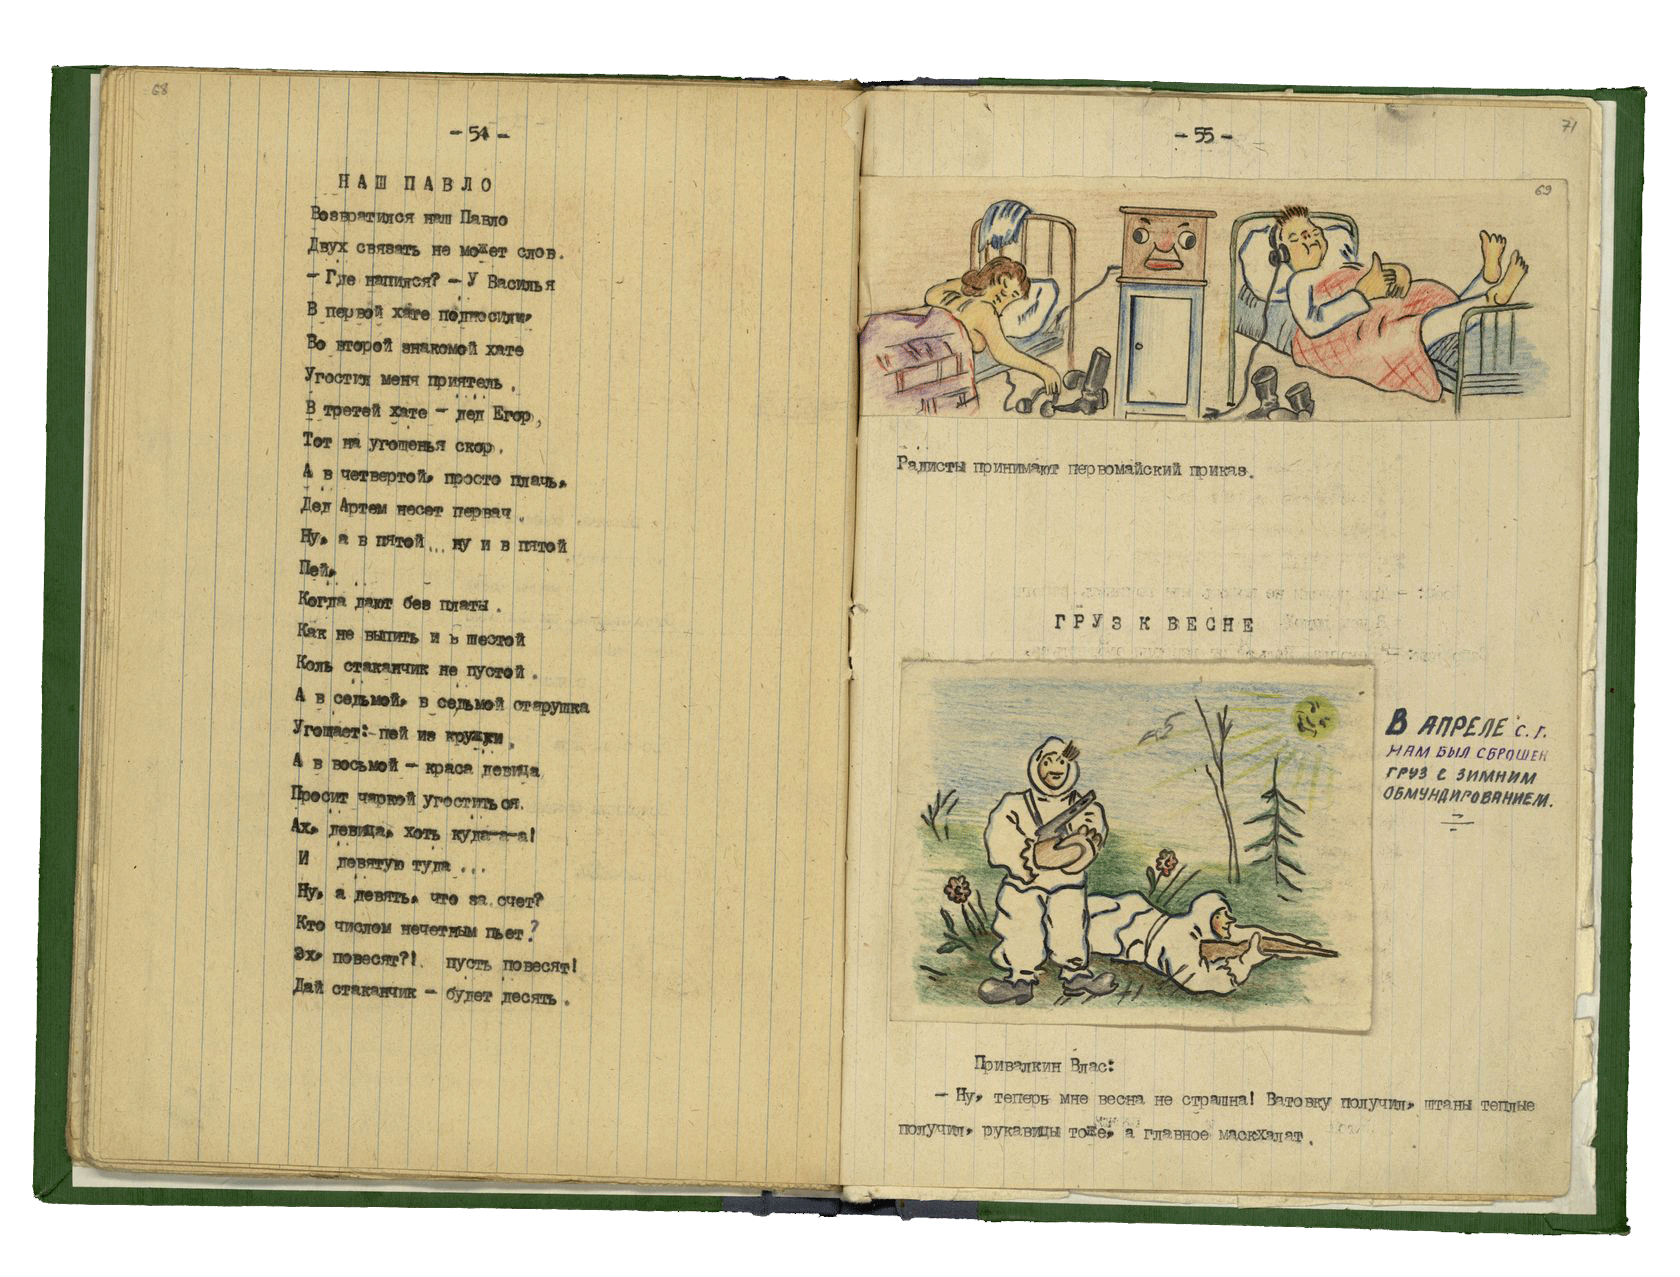 68
- 54 -
НАШ ПАВЛО
Возвратился наш Павло
Двух связать не может слов.
- Где напился? - У Василья
В первой хате подносили,
Во второй знакомой хате
Угостил меня приятель.
В третей хате - дед Егор,
Тот на угощенья скор.
А в четвертой, просто плачь,
Дед Артем несет первач.
Ну, а в пятой... ну и в пятой
Пей,
Когда дают без платы.
Как не выпить и в шестой
Коль стаканчик не пустой.
А в седьмой, в седьмой старушка
Угощает:- пей из кружки.
А в восьмой - краса девица
Просит чаркой угоститься.
Ах, девица, хоть куда-а-а!
И девятую туда ...
Ну, а девять, что за счет?
Кто числом нечетным пьет?
Эх, повесят?!. пусть повесят!
Дай стаканчик - будет десять.
71
- 55 -
69
Радисты принимают первомайский приказ.
ГРУЗ К ВЕСНЕ
В АПРЕЛЕ С.Г.
НАМ БЫЛ СБРОШЕН
ГРУЗ С ЗИМНИМ
ОБМУНДИРОВАНИЕМ.
Привалкин Влас:
- Ну, теперь мне весна не страшна! Ватовку получил, штаны теплые
получил, рукавицы тоже, а главное маскхалат.